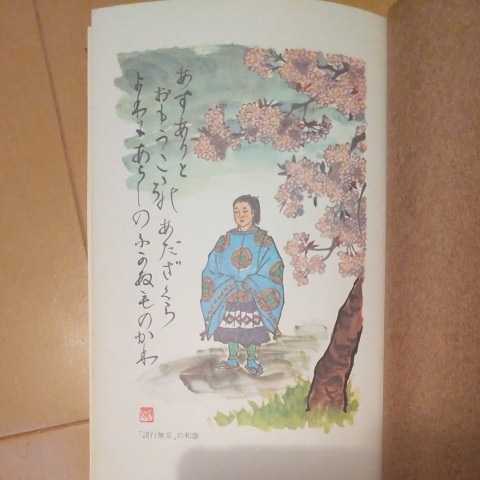 あすありと
おもうこゝろの あだざくら
よわにあらしのふかぬものかわ
「諸行無常」の和歌